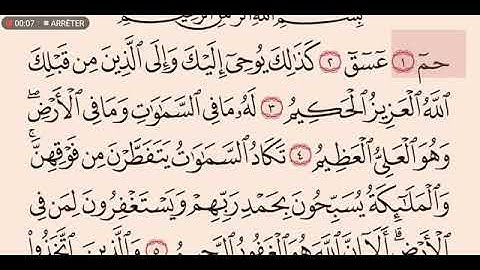 00:07 ARRÊTER
بِسْمِ ٱللَّهِ ٱلرَّحْمَٰنِ ٱلرَّحِيمِ
حمٓ ١ عٓسٓقٓ ٢ كَذَٰلِكَ يُوحِىٓ إِلَيْكَ وَإِلَى ٱلَّذِينَ مِن قَبْلِكَ
ٱللَّهُ ٱلْعَزِيزُ ٱلْحَكِيمُ ٣ لَهُۥ مَا فِى ٱلسَّمَٰوَٰتِ وَمَا فِى ٱلْأَرْضِ ۖ
وَهُوَ ٱلْعَلِىُّ ٱلْعَظِيمُ ٤ تَكَادُ ٱلسَّمَٰوَٰتُ يَتَفَطَّرْنَ مِن فَوْقِهِنَّ ۚ
وَٱلْمَلَٰٓئِكَةُ يُسَبِّحُونَ بِحَمْدِ رَبِّهِمْ وَيَسْتَغْفِرُونَ لِمَن فِى
ٱلْأَرْضِ ۗ أَلَآ إِنَّ ٱللَّهَ هُوَ ٱلْغَفُورُ ٱلرَّحِيمُ ٥ وَٱلَّذِينَ ٱتَّخَذُوا۟